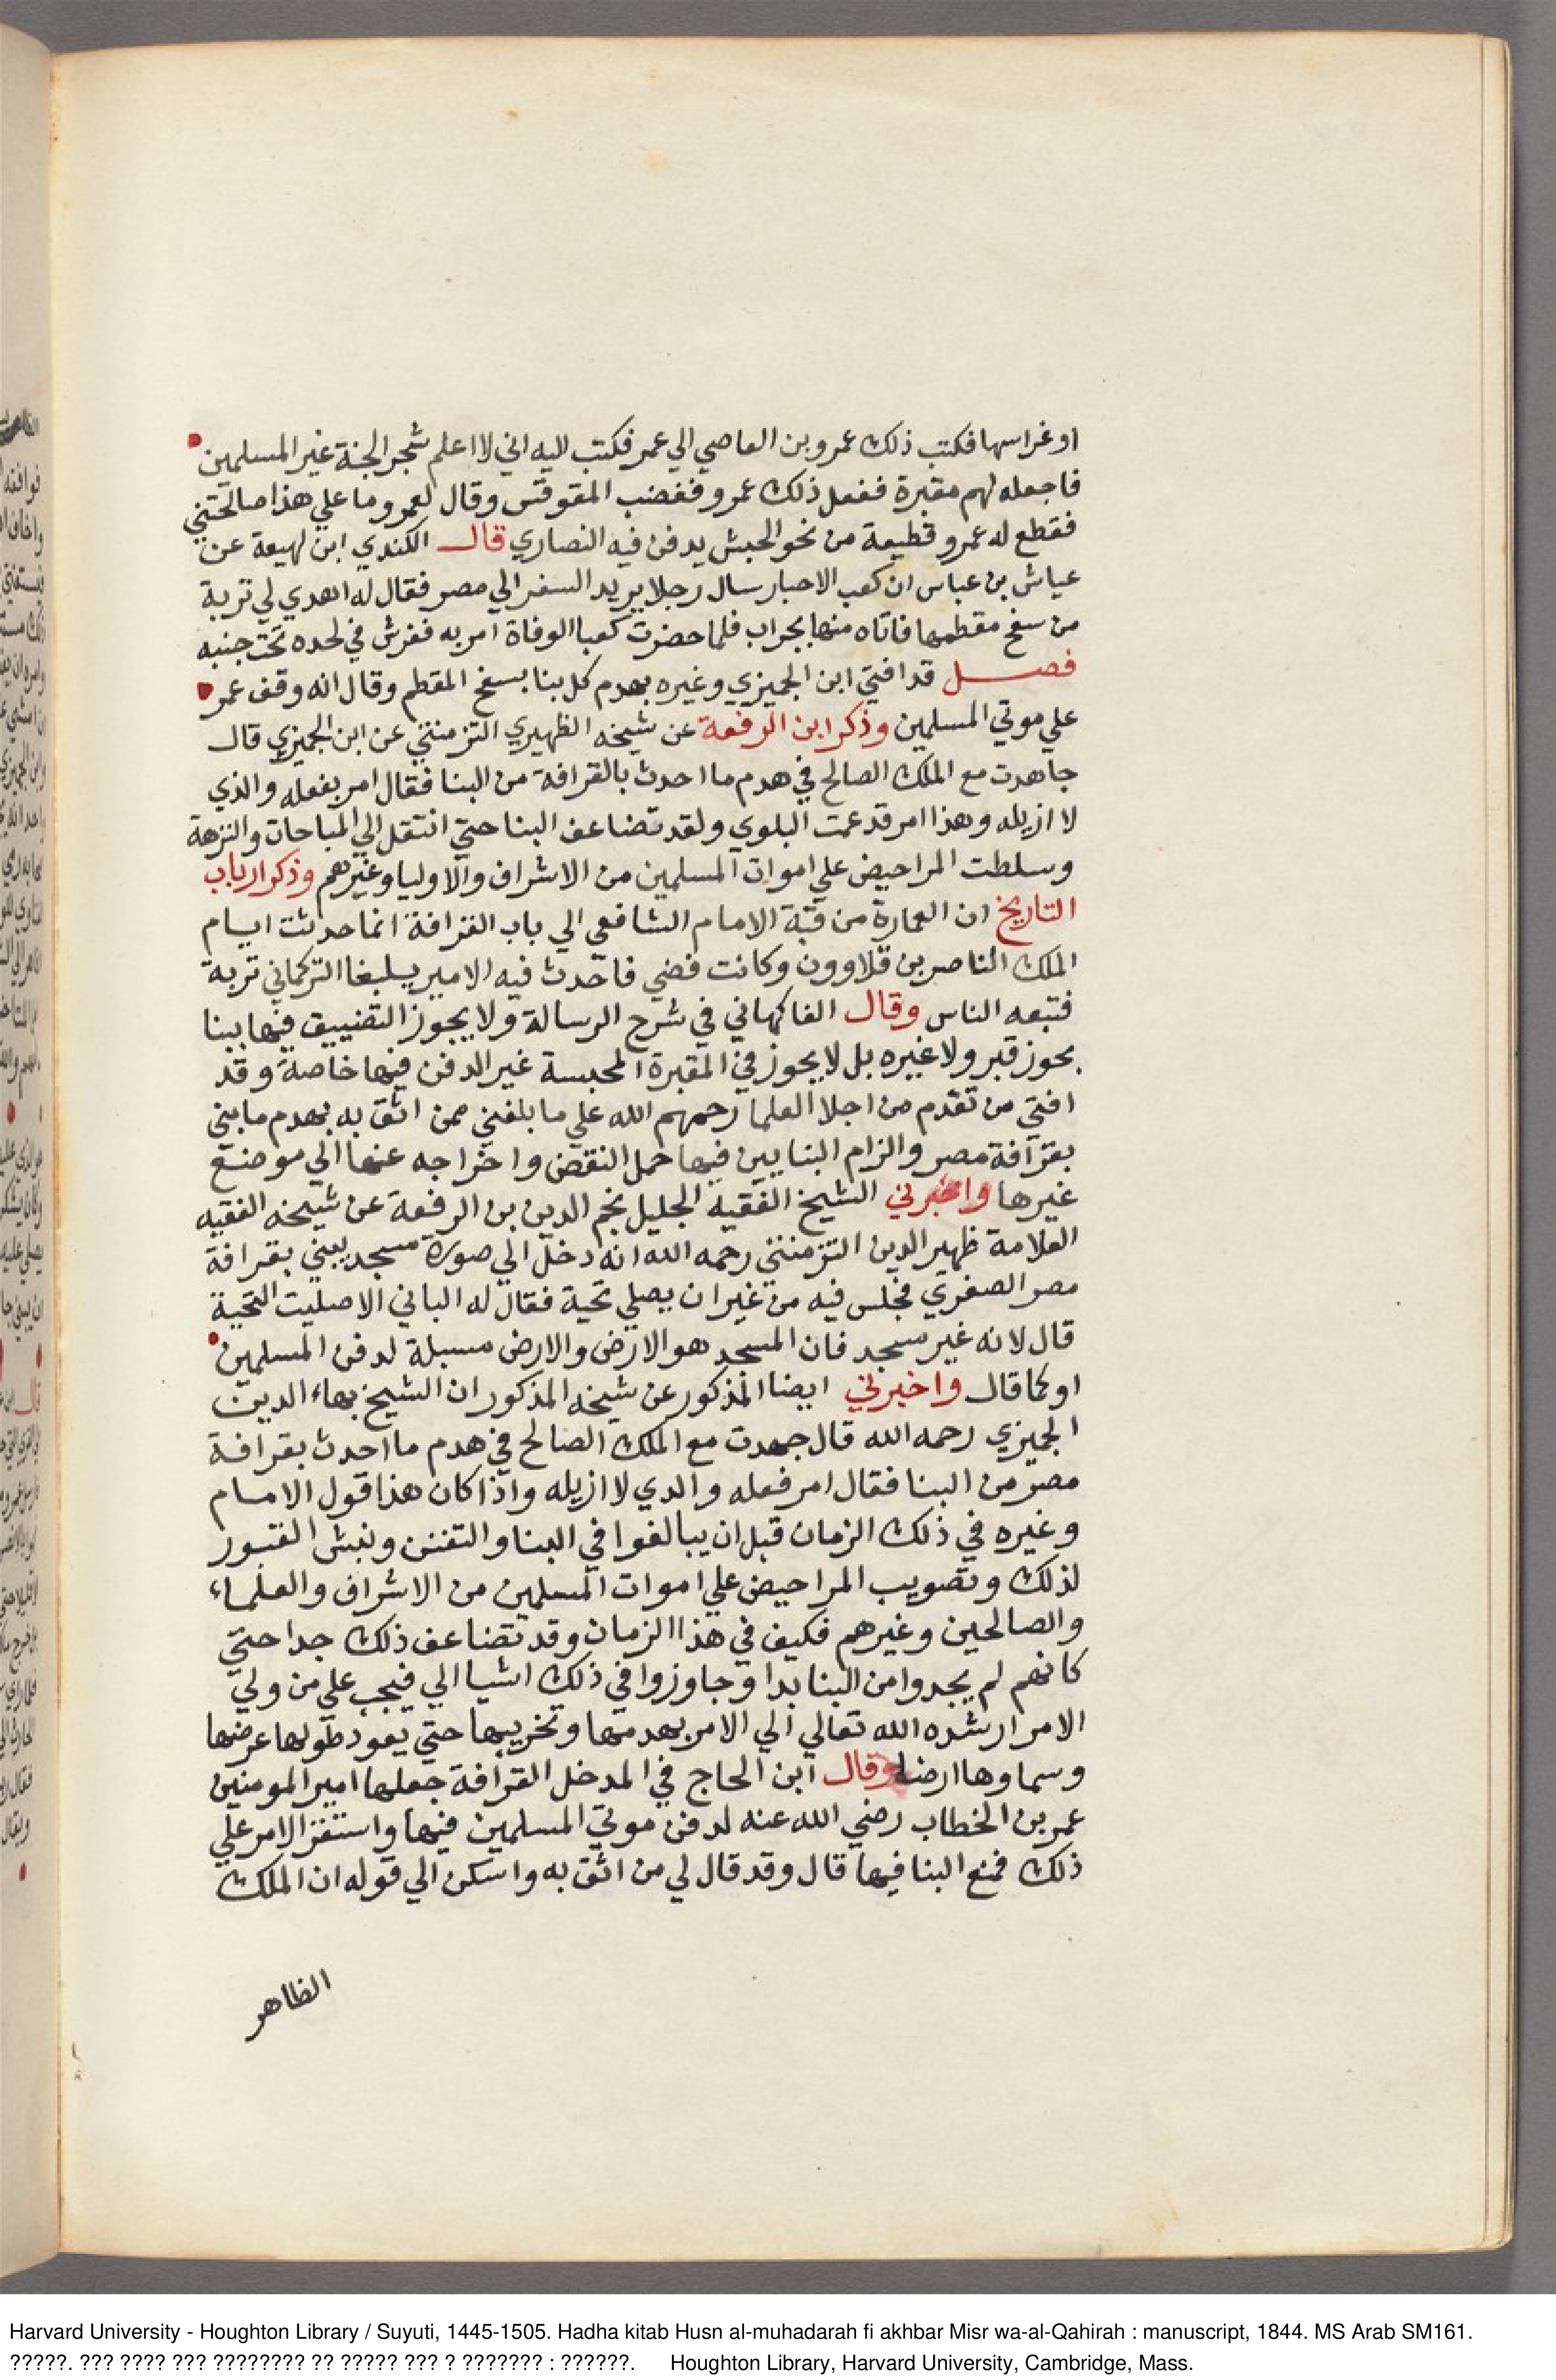 اوغراسها فكتب ذلك عمرو بن العاصي الي عمر فكتب اليه اني لا اعلم شجر الجنة غير المسلمين
فاجعله لهم مقبرة ففعل ذلك عمرو فغضب المقوقس وقال لعمرو ما علي هذا صالحتني
فقطع له عمرو قطيعة من نحو الحبش يدفن فيه النصاري قال الكندي ابن لهيعة عن
عياش بن عباس ان كعب الاحبار سال رجلا يريد السفر الي مصر فقال له اهدي لي تربة
من سفح مقطمها فاتاه منها بجراب فلما حضرت كعبا الوفاة امر به ففرش في لحده تحت جنبه
فصل قد افتي ابن الجميزي وغيره بهدم كل بنا بسفح المقطم وقال انه وقف عمر
علي موتي المسلمين وذكر ابن الرفعة عن شيخه الظهيري التزمنتي عن ابن الجميزي قال
جاهدت مع الملك الصالح في هدم ما احدث بالقرافة من البنا فقال امر بفعله والذي
لا ازيله وهذا امر قد عمت البلوي ولقد تضاعف البنا حتي انتقل الي المباحات والنزهة
وسلطت المراحيض علي اموات المسلمين من الاشراف والاوليا وغيرهم وذكر ارباب
التاريخ ان العمارة من قبة الامام الشافعي الي باب القرافة انما حدثت ايام
الملك الناصر بن قلاوون وكانت فضي فاحدث فيه الامير يلبغا التركماني تربة
فتبعه الناس وقال الفاكهاني في شرح الرسالة ولا يجوز التضييق فيها ببنا
بحوز قبر ولا غيره بل لا يجوز في المقبرة المحبسة غير الدفن فيها خاصة وقد
افتي من تقدم من اجلا العلما رحمهم الله علي ما بلغني ممن اثق به بهدم ما بني
بقرافة مصر والزام البنايين فيها حمل النقض واخراجه عنها الي موضع
غيرها واخبرني الشيخ الفقيه الجليل نجم الدين بن الرفعة عن شيخه الفقيه
العلامة ظهير الدين التزمنتي رحمه الله انه دخل الي صورة مسجد يبني بقرافة
مصر الصغري فجلس فيه من غير ان يصلي تحية فقال له الباني الا صليت التحية
قال لانه غير مسجد فان المسجد هو الارض والارض مسبلة لدفن المسلمين
او كما قال واخبرني ايضا المذكور عن شيخه المذكور ان الشيخ بهاء الدين
الجميزي رحمه الله قال جهدت مع الملك الصالح في هدم ما احدث بقرافة
مصر من البنا فقال امر فعله والدي لا ازيله واذا كان هذا قول الامام
وغيره في ذلك الزمان قبل ان يبالغوا في البنا والتفنن ونبش القبور
لذلك وتصويب المراحيض علي اموات المسلمين من الاشراف والعلماء
والصالحين وغيرهم فكيف في هذا الزمان وقد تضاعف ذلك جدا حتي
كانهم لم يجدوا من البنا بدا وجاوزوا في ذلك اشيا الي فيجب علي من ولي
الامر ارشده الله تعالي الي الامر بهدمها وتخريبها حتي يعود طولها عرضها
وسماوها ارضا وقال ابن الحاج في المدخل القرافة جعلها امير المومنين
عمر بن الخطاب رضي الله عنه لدفن موتي المسلمين فيها واستقر الامر علي
ذلك فمنع البنا فيها قال وقد قال لي من اثق به واسكن الي قوله ان الملك
الظاهر
Harvard University - Houghton Library / Suyuti, 1445-1505. Hadha kitab Husn al-muhadarah fi akhbar Misr wa-al-Qahirah : manuscript, 1844. MS Arab SM161.
?????. ??? ???? ??? ???????? ?? ????? ??? ? ??????? : ??????. Houghton Library, Harvard University, Cambridge, Mass.